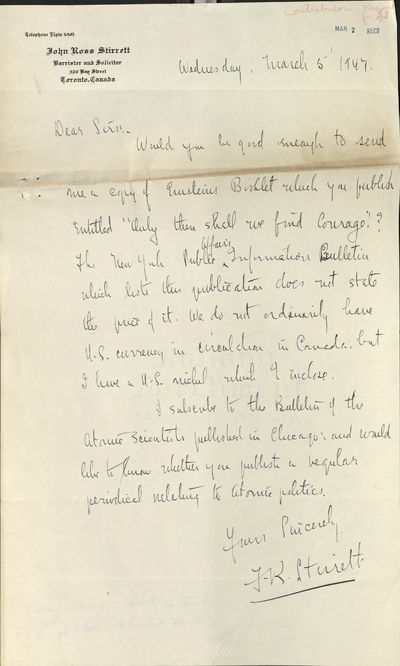 Contributor -
MAR 7 REC'D
Telephone Elgin
John Ross Stirrett
Barrister and Solicitor
Bay Street
Toronto, Canada
Wednesday, March 5 1947.
Dear Sirs:-
Would you be good enough to send
me a copy of Einsteins Booklet which you publish
Entitled "Only then shall we find Courage"?
The New York Public Affairs Information Bulletin
which lists this publication does not state
the price of it. We do not ordinarily have
U.S. currency in circulation in Canada. but
I have a U-S. nickel which I inclose.
I subscribe to the Bulletin of the
Atomic Scientists published in Chicago and would
like to know whether you publish a regular
periodical relating to atomic politics.
Yours Sincerely
Stirrett